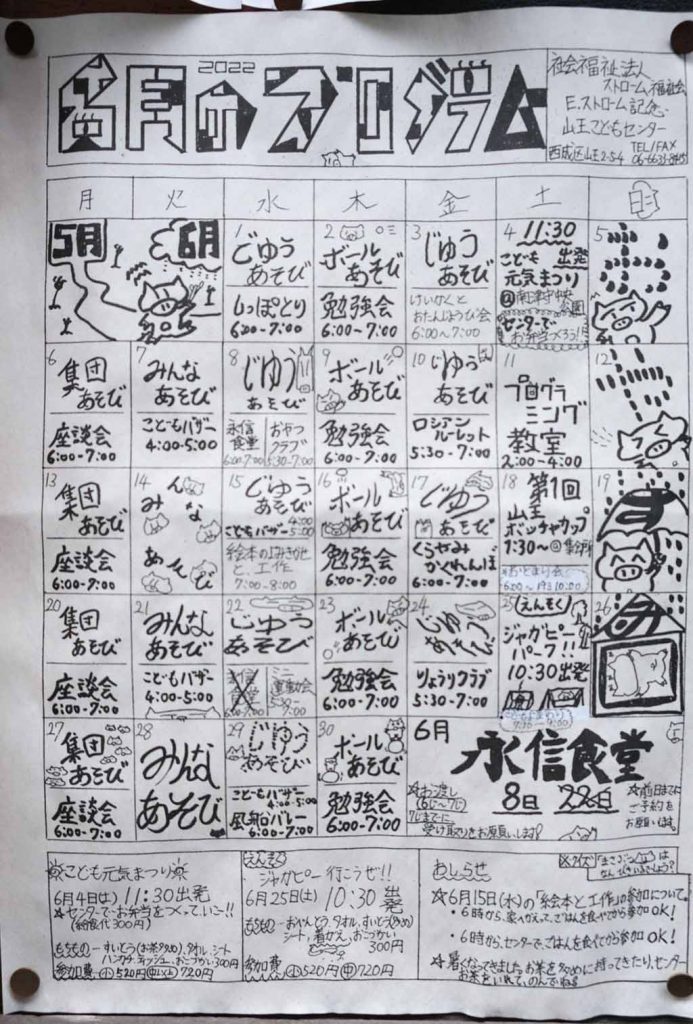 2022
6月のプログラム
社会福祉法人
ストローム福祉会
E.ストローム記念
山王こどもセンター
西成区山王2-5-4 TEL/FAX
月 火 水 木 金 土 日
5月 6月
1
じゆう
あそび
しっぽとり
6:00~7:00
2
ボール
あそび
勉強会
6:00~7:00
3
じゆう
あそび
けいかくと
おたんじょうび会
6:00~7:00
4
11:30
こども 出発
元気まつり
センターで
お弁当つくろう!!
5
6
集団
あそび
座談会
6:00-7:00
7
みんな
あそび
こどもバザー
4:00-5:00
8
じゆう
あそび
永信
食堂
6:00-7:00
おやつ
クラブ
5:30-7:00
9
ボール
あそび
勉強会
6:00-7:00
10
じゆう
あそび
ロシアン
ルーレット
5:30-7:00
11
プログラ
ミング
教室
2:00-4:00
12
13
集団
あそび
座談会
6:00-7:00
14
みんな
あそび
15
じゆう
あそび
こどもバザー 4:00
5:00
絵本のよみきかせ
と、工作
7:00-8:00
16
ボール
あそび
勉強会
6:00-7:00
17
じゆう
あそび
くらやみ
かくれんぼ
6:00-7:00
18
第1回
山王
ボッチャカップ
7:30~
おとまり会
6:00~19日10:00
19
20
集団
あそび
座談会
6:00-7:00
21
みんな
あそび
こどもバザー
4:00-5:00
22
じゆう
あそび
永信
食堂
6:00-7:00
ミニ
運動会
23
ボール
あそび
勉強会
6:00-7:00
24
じゆう
あそび
りょうりクラブ
5:30-7:00
25
(えんそく)
ジャガピー
パーク!!
10:30出発
26
27
集団
あそび
座談会
6:00-7:00
28
みんな
あそび
29
じゆう
あそび
こどもバザー
4:00-5:00
風船バレー
6:00-7:00
30
ボール
あそび
勉強会
6:00-7:00
6月
永信食堂
8日 22日
☆お渡し
(6じ~7じ)
7じまでに
受け取りをお願いします!
☆前日までに
ご予約を
お願いします。
☀こども元気まつり☀
6月4日(土) 11:30出発
☆センターでお弁当をつくっていこー!!
(給食代300円)
もちもの―すいとう(お茶多め)、タオル、シート
ハンカチ、ティッシュ、おこづかい300円
参加費 小520円 中以上720円
えんそく
ジャガピー行こうぜ!!
6月25日(土) 10:30出発
もちもの―おべんとう、タオル、すいとう(多め)
シート、着がえ、おこづかい
300円
参加費 小520円 中720円
おしらせ
☆6月15日(水)の「絵本と工作」の参加について。
・6時から、家へかえって、ごはんを食べてから参加OK!
・6時から、センターで、ごはんを食べてから参加OK!
☆暑くなってきました。お茶を多めに持ってきたり、センターで
お茶をいれて、のんでね